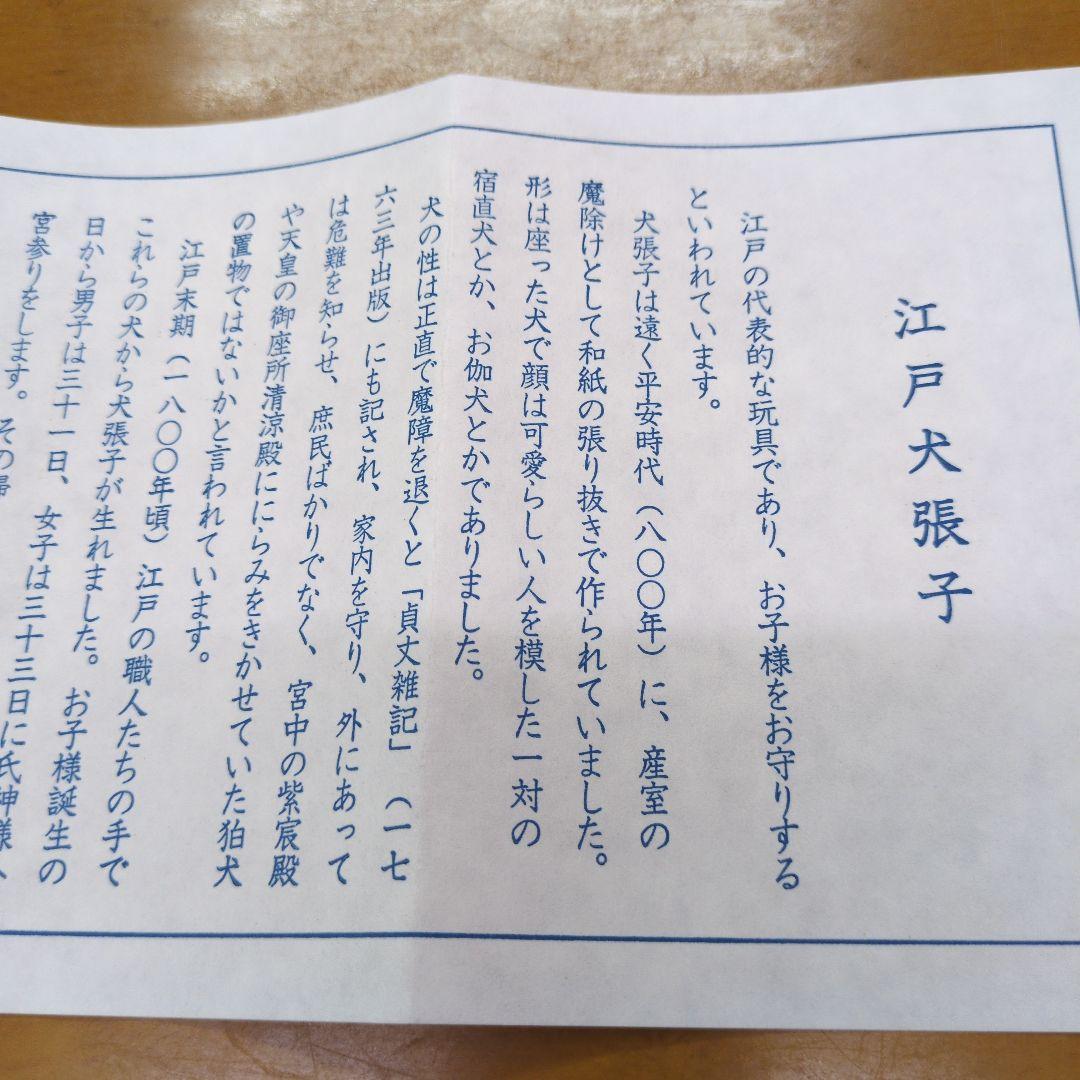 江戸犬張子
江戸の代表的な玩具であり、お子様をお守りする
といわれています。
犬張子は遠く平安時代（八〇〇年）に、産室の
魔除けとして和紙の張り抜きで作られていました。
形は座った犬で顔は可愛らしい人を模した一対の
宿直犬とか、お伽犬とかでありました。
犬の性は正直で魔障を退くと「貞丈雑記」（一七
六三年出版）にも記され、家内を守り、外にあって
は危難を知らせ、庶民ばかりでなく、宮中の紫宸殿
や天皇の御座所清涼殿ににらみをきかせていた狛犬
の置物ではないかと言われています。
江戸末期（一八〇〇年頃）江戸の職人たちの手で
これらの犬から犬張子が生れました。お子様誕生の
日から男子は三十一日、女子は三十三日に氏神様、
宮参りをします。その帰